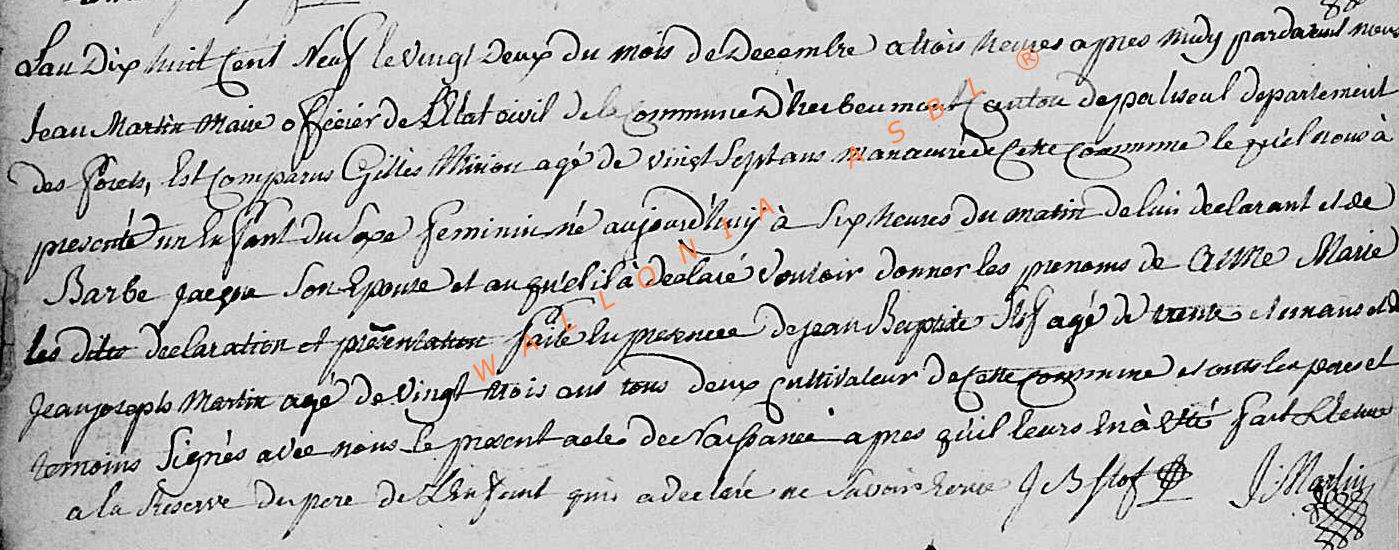 L'an Dix huit Cent Neuf le vingt Deux du mois de Decembre a trois heures apres midy pardavant nous
Jean Martin Maire officier de l'Etat civil de la Commune d'herbeumont Canton de paliseul departement
des forets, Est Comparus Gilles Mirion agé de vingt Sept ans manoeuvre de Cette Commune le quel nous à
presenté un Enfant du Sexe feminin né aujourd'huij à Six heures du matin de luy declarant et de
Barbe Jacque Son Epouse et au quel il à declaré Vouloir donner les prenoms de Anne Marie
les dites declaration et presentation faite En presence de jean Baptiste Stof agé de trente et un ans et de
Jean joseph Martin agé de Vingt trois ans tous deux Cultivateur de Cette Commune et ont les pere et
temoins Signés avec nous le present acte de Naissance apres qu'il leurs En à Eté fait Lecture
a la Reserve du pere de L'Enfant qui a declaré ne Savoir J B Stof J: Martin
WALLONIA ASBL ®